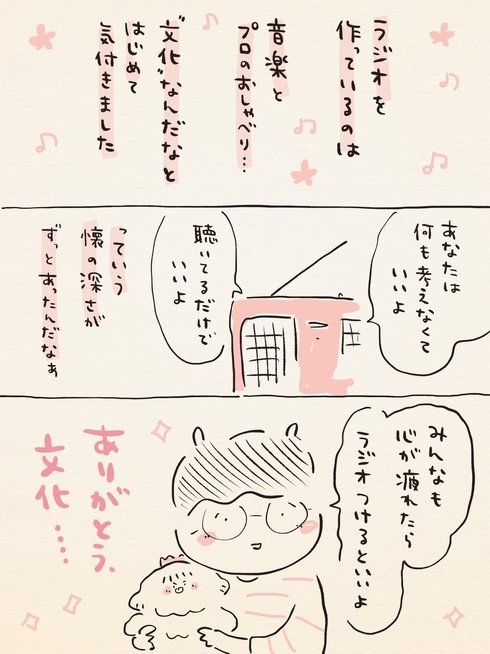 ラジオを
作っているのは
音楽と
プロのおしゃべり…
"文化"なんだなと
はじめて
気付きました
あなたは
何も考えなくて
いいよ
聴いてるだけで
いいよ
っていう
懐の深さが
ずっとあったんだなぁ
みんなも
心が疲れたら
ラジオつけるといいよ
ありがとう、
文化……